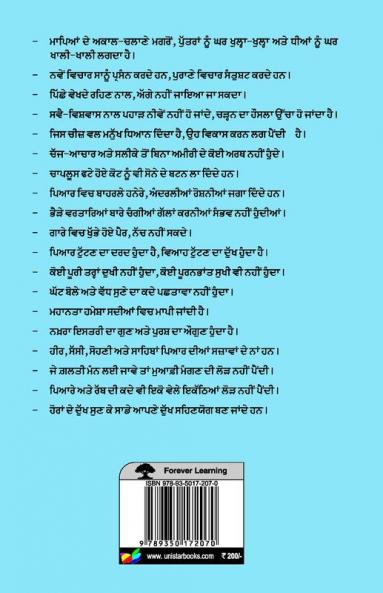 - ਮਾਪਿਆਂ ਦੇ ਅਕਾਲ-ਚਲਾਣੇ ਮਗਰੋਂ, ਪੁੱਤਰਾਂ ਨੂੰ ਘਰ ਖੁਲ੍ਹਾ-ਖੁਲ੍ਹਾ ਅਤੇ ਧੀਆਂ ਨੂੰ ਘਰ
ਖਾਲੀ-ਖਾਲੀ ਲਗਦਾ ਹੈ।
- ਨਵੇਂ ਵਿਚਾਰ ਸਾਨੂੰ ਪ੍ਰਸੰਨ ਕਰਦੇ ਹਨ, ਪੁਰਾਣੇ ਵਿਚਾਰ ਸੰਤੁਸ਼ਟ ਕਰਦੇ ਹਨ।
- ਪਿੱਛੇ ਵੇਖਦੇ ਰਹਿਣ ਨਾਲ, ਅੱਗੇ ਨਹੀਂ ਜਾਇਆ ਜਾ ਸਕਦਾ।
- ਸਵੈ-ਵਿਸ਼ਵਾਸ ਨਾਲ ਪਹਾੜ ਨੀਵੇਂ ਨਹੀਂ ਹੋ ਜਾਂਦੇ, ਚੜ੍ਹਨ ਦਾ ਹੌਸਲਾ ਉੱਚਾ ਹੋ ਜਾਂਦਾ ਹੈ।
- ਜਿਸ ਚੀਜ਼ ਵਲ ਮਨੁੱਖ ਧਿਆਨ ਦਿੰਦਾ ਹੈ, ਉਹ ਵਿਕਾਸ ਕਰਨ ਲਗ ਪੈਂਦੀ ਹੈ।
- ਚੱਜ-ਆਚਾਰ ਅਤੇ ਸਲੀਕੇ ਤੋਂ ਬਿਨਾ ਅਮੀਰੀ ਦੇ ਕੋਈ ਅਰਥ ਨਹੀਂ ਹੁੰਦੇ।
- ਚਾਪਲੂਸ ਫਟੇ ਹੋਏ ਕੋਟ ਨੂੰ ਵੀ ਸੋਨੇ ਦੇ ਬਟਨ ਲਾ ਦਿੰਦੇ ਹਨ।
- ਪਿਆਰ ਵਿਚ ਬਾਹਰਲੇ ਹਨੇਰੇ, ਅੰਦਰਲੀਆਂ ਰੋਸ਼ਨੀਆਂ ਜਗਾ ਦਿੰਦੇ ਹਨ।
- ਭੈੜੇ ਵਰਤਾਰਿਆਂ ਬਾਰੇ ਚੰਗੀਆਂ ਗੱਲਾਂ ਕਰਨੀਆਂ ਸੰਭਵ ਨਹੀਂ ਹੁੰਦੀਆਂ।
- ਗਾਰੇ ਵਿਚ ਖੁੱਭੇ ਹੋਏ ਪੈਰ, ਨੱਚ ਨਹੀਂ ਸਕਦੇ।
- ਪਿਆਰ ਟੁੱਟਣ ਦਾ ਦਰਦ ਹੁੰਦਾ ਹੈ, ਵਿਆਹ ਟੁੱਟਣ ਦਾ ਦੁੱਖ ਹੁੰਦਾ ਹੈ।
- ਕੋਈ ਪੂਰੀ ਤਰ੍ਹਾਂ ਦੁਖੀ ਨਹੀਂ ਹੁੰਦਾ, ਕੋਈ ਪੂਰਨਭਾਂਤ ਸੁਖੀ ਵੀ ਨਹੀਂ ਹੁੰਦਾ।
- ਘੱਟ ਬੋਲੇ ਅਤੇ ਵੱਧ ਸੁਣੇ ਦਾ ਕਦੇ ਪਛਤਾਵਾ ਨਹੀਂ ਹੁੰਦਾ।
- ਮਹਾਨਤਾ ਹਮੇਸ਼ਾ ਸਦੀਆਂ ਵਿਚ ਮਾਪੀ ਜਾਂਦੀ ਹੈ।
- ਨਖ਼ਰਾ ਇਸਤਰੀ ਦਾ ਗੁਣ ਅਤੇ ਪੁਰਸ਼ ਦਾ ਔਗੁਣ ਹੁੰਦਾ ਹੈ।
- ਹੀਰ, ਸੱਸੀ, ਸੋਹਣੀ ਅਤੇ ਸਾਹਿਬਾਂ ਪਿਆਰ ਦੀਆਂ ਸਜ਼ਾਵਾਂ ਦੇ ਨਾਂ ਹਨ।
- ਜੇ ਗ਼ਲਤੀ ਮੰਨ ਲਈ ਜਾਵੇ ਤਾਂ ਮੁਆਫ਼ੀ ਮੰਗਣ ਦੀ ਲੋੜ ਨਹੀਂ ਪੈਂਦੀ।
- ਪਿਆਰੇ ਅਤੇ ਰੱਬ ਦੀ ਕਦੇ ਵੀ ਇਕੋ ਵੇਲੇ ਇਕੱਠਿਆਂ ਲੋੜ ਨਹੀਂ ਪੈਂਦੀ।
- ਹੋਰਾਂ ਦੇ ਦੁੱਖ ਸੁਣ ਕੇ ਸਾਡੇ ਆਪਣੇ ਦੁੱਖ ਸਹਿਣਯੋਗ ਬਣ ਜਾਂਦੇ ਹਨ।
Forever Learning
ISBN 978-93-5017-207-0
9 789350 172070
www.unistarbooks.com ₹ 200/-